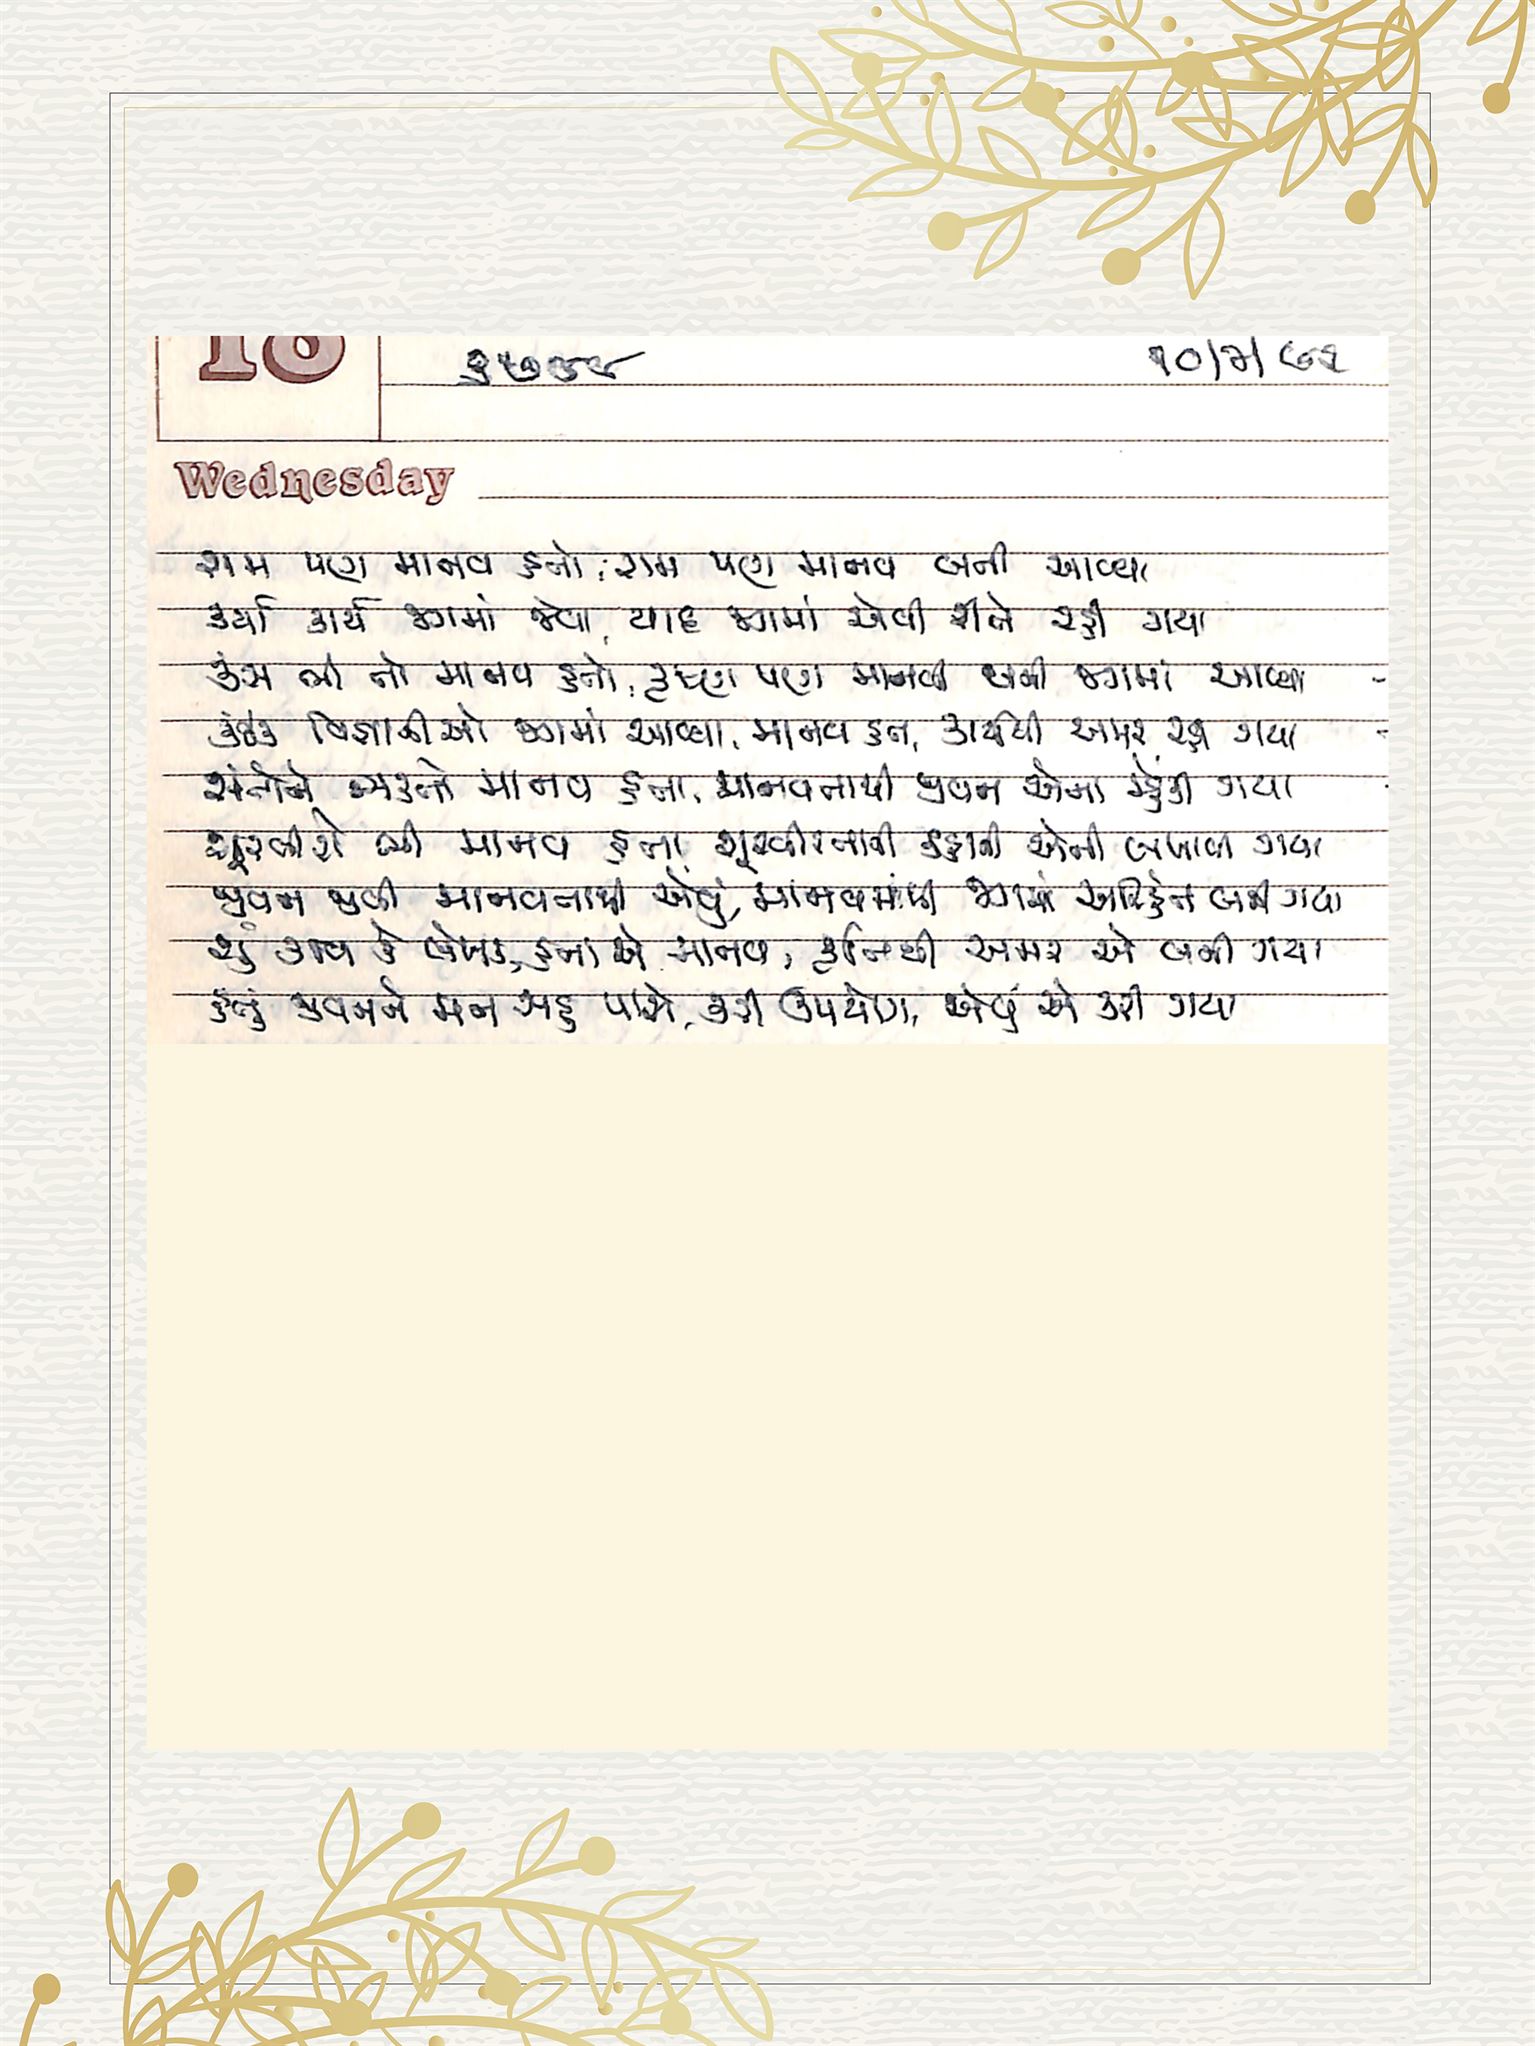 18
૧૦/૭/૯૧
Wednesday
રામ પણ માનવ હતો, રામ પણ માનવ બની આવ્યા
કર્યા કાર્ય જગમાં જેવા, યાદ જગમાં એવી રીતે રહી ગયા
કંસ ભી તો માનવ હતો, કૃષ્ણ પણ માનવી બની જગમાં આવ્યા
કંઈક વિજ્ઞાનીઓ જગમાં આવ્યા, માનવ હતા, કાર્યથી અમર રહી ગયા
સંતોને ભક્તો માનવ હતા, માનવતાથી જીવન એના મ્હેંકી ગયા
શૂરવીરો ભી માનવ હતા, શૂરવીરતાની કહાની એની લખાવી ગયા
જીવન જીવી માનવતાથી એવું, માનવમાંથી જગમાં અરિહંત બની ગયા
શું કવિ કે લેખક, હતા એ માનવ, કૃતિથી અમર એ બની ગયા
હતું જીવનને મન સહુ પાસે, કરી ઉપયોગ, એવું એ કરી ગયા